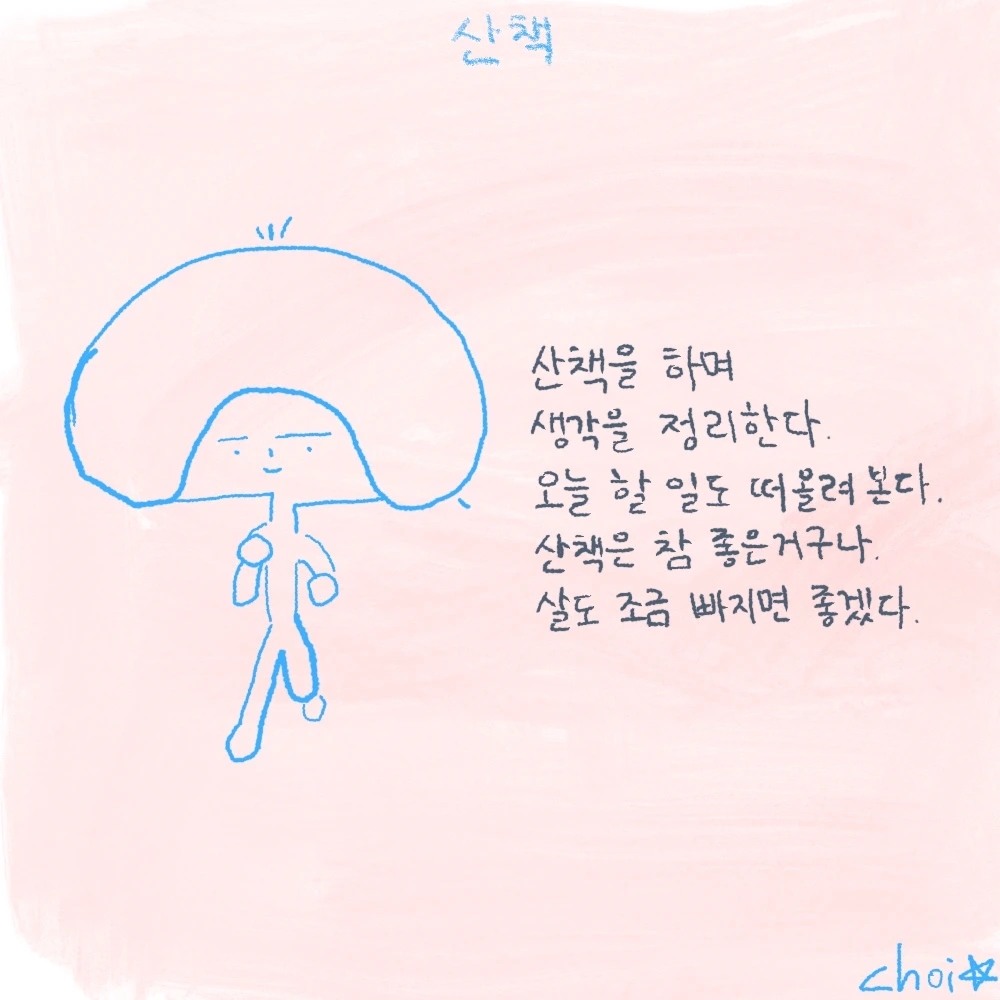 산책
산책을 하며
생각을 정리한다.
오늘 할 일도 떠올려 본다.
산책은 참 좋은거구나.
살도 조금 빠지면 좋겠다.
choi☆